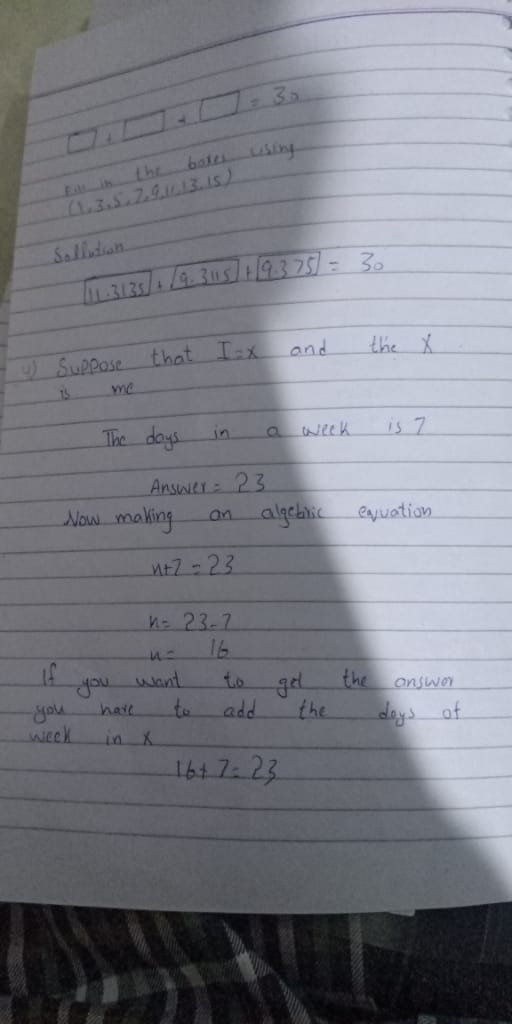 □ + □ + □ = 30
Fill in the boxes using
(1,3,5,7,9,11,13,15)
Sollution
11.3135 + 9.3115 + 9.375 = 30
4) Suppose that I=x and the X
is me
The days in a week is 7
Answer = 23
Now making an algebric equation
n+7=23
n= 23-7
n= 16
If you want to get the answer
you have to add the days of
week in X
16+7=23